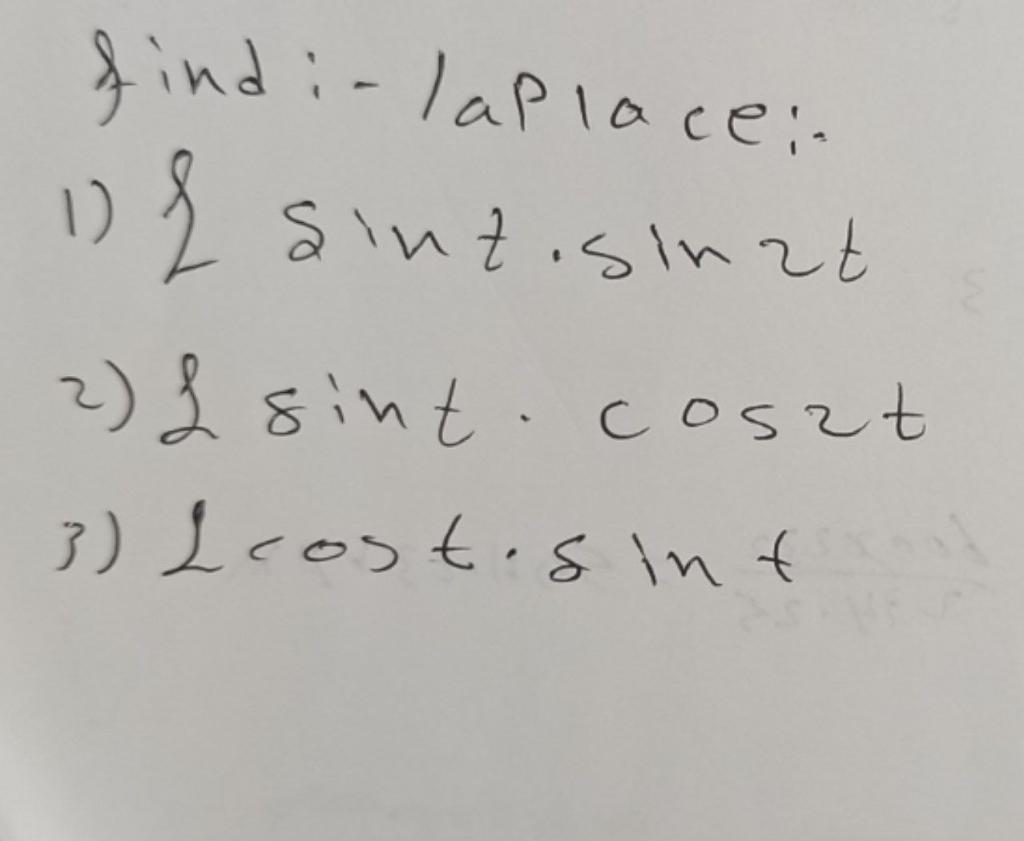 find :- laplace :-
1) £ sint . sin2t
2) £ sint . cos2t
3) £ cost . sint